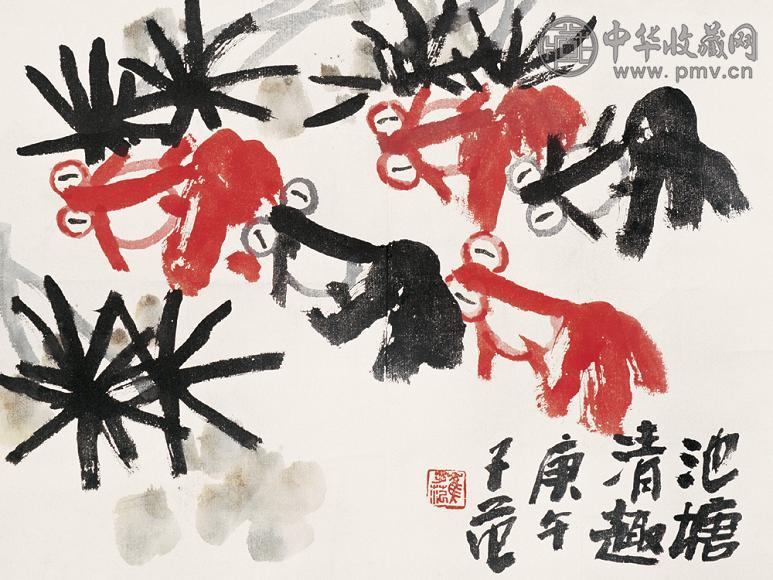 中华收藏网
www.pmv.cn
池塘
清趣
庚午
子范